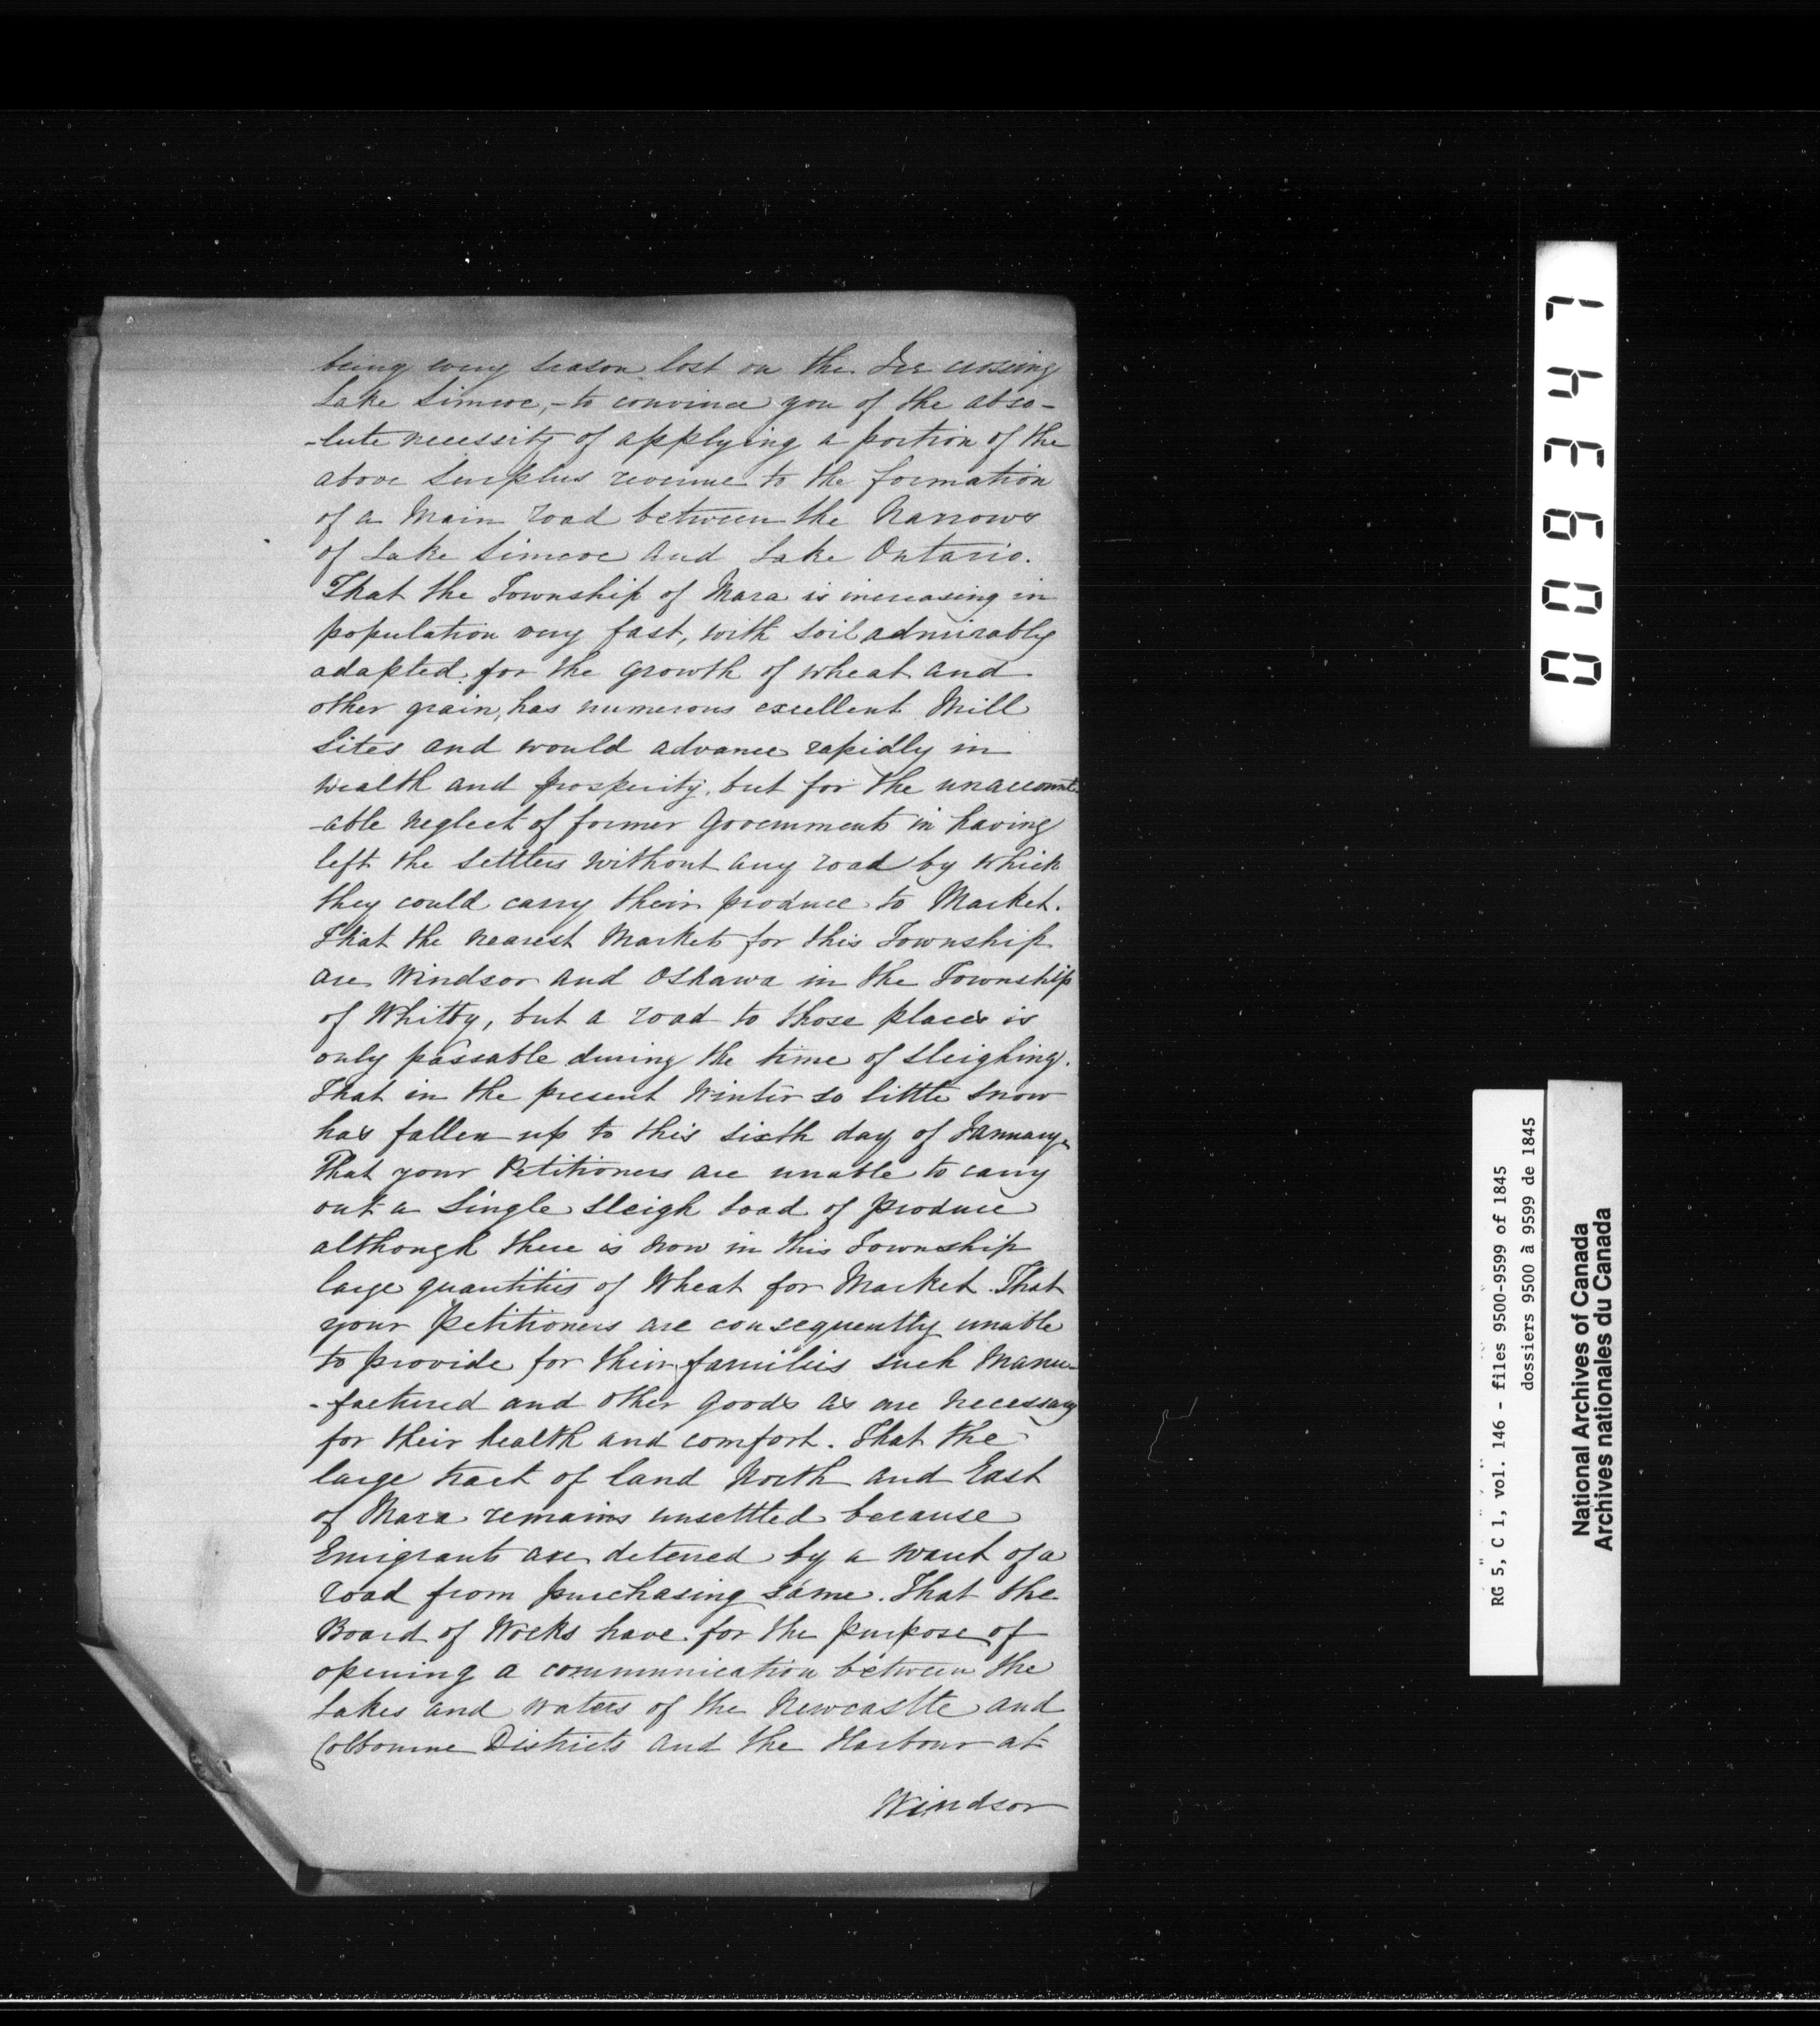 being every season lost on the Ice crossing
Lake Simcoe, - to convince you of the abso-
-lute necessity of applying a portion of the
above surplus revenue to the formation
of a Main road between the Narrows
of Lake Simcoe and Lake Ontario.
That the Township of Mara is increasing in
population very fast, with soil admirably
adapted for the growth of wheat and
other grain, has numerous excellent Mill
Sites and would advance rapidly in
wealth and prosperity, but for the unaccount-
-able neglect of former Governments in having
left the settlers without any road by which
they could carry their produce to Market.
That the nearest Markets for this Township
are Windsor and Oshawa in the Township
of Whitby, but a road to those places is
only passable during the time of sleighing.
That in the present Winter so little snow
has fallen up to this sixth day of January,
That your Petitioners are unable to carry
out a single sleigh load of produce
although there is now in this Township
large quantities of Wheat for Market. That
your Petitioners are consequently unable
to provide for their families such Manu-
-factured and other goods as are necessary
for their health and comfort. That the
large tract of land North and East
of Mara remains unsettled because
Emigrants are deterred by a want of a
road from purchasing same. That the
Board of Works have for the purpose of
opening a communication between the
Lakes and waters of the Newcastle and
Colbourne Districts and the Harbour at
Windsor
009347
RG 5, C 1, vol. 146 - files 9500-9599 of 1845
dossiers 9500 à 9599 de 1845
National Archives of Canada
Archives nationales du Canada